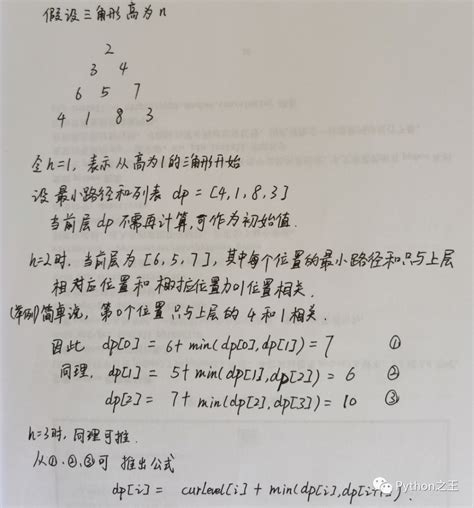 假设三角形高为n
2
3 4
6 5 7
4 1 8 3
令h=1, 表示从高为1的三角形开始
设最小路径和列表 dp = [4,1,8,3]
当前层dp不需再计算,可作为初始值.
h=2时, 当前层为 [6,5,7], 其中每个位置的最小路径和只与上层
相对应位置和相对应位置加1位置相关.
(举例)简单说, 第0个位置只与上层的4和1相关.
因此 dp[0] = 6+min(dp[0],dp[1]) = 7 ①
同理, dp[1] = 5+min(dp[1],dp[2]) = 6 ②
dp[2] = 7+min(dp[2],dp[3]) = 10 ③
h=3时, 同理可推.
从①、②、③可推出公式
dp[i] = curlevel[i] + min(dp[i],dp[i+1]).
Python之王